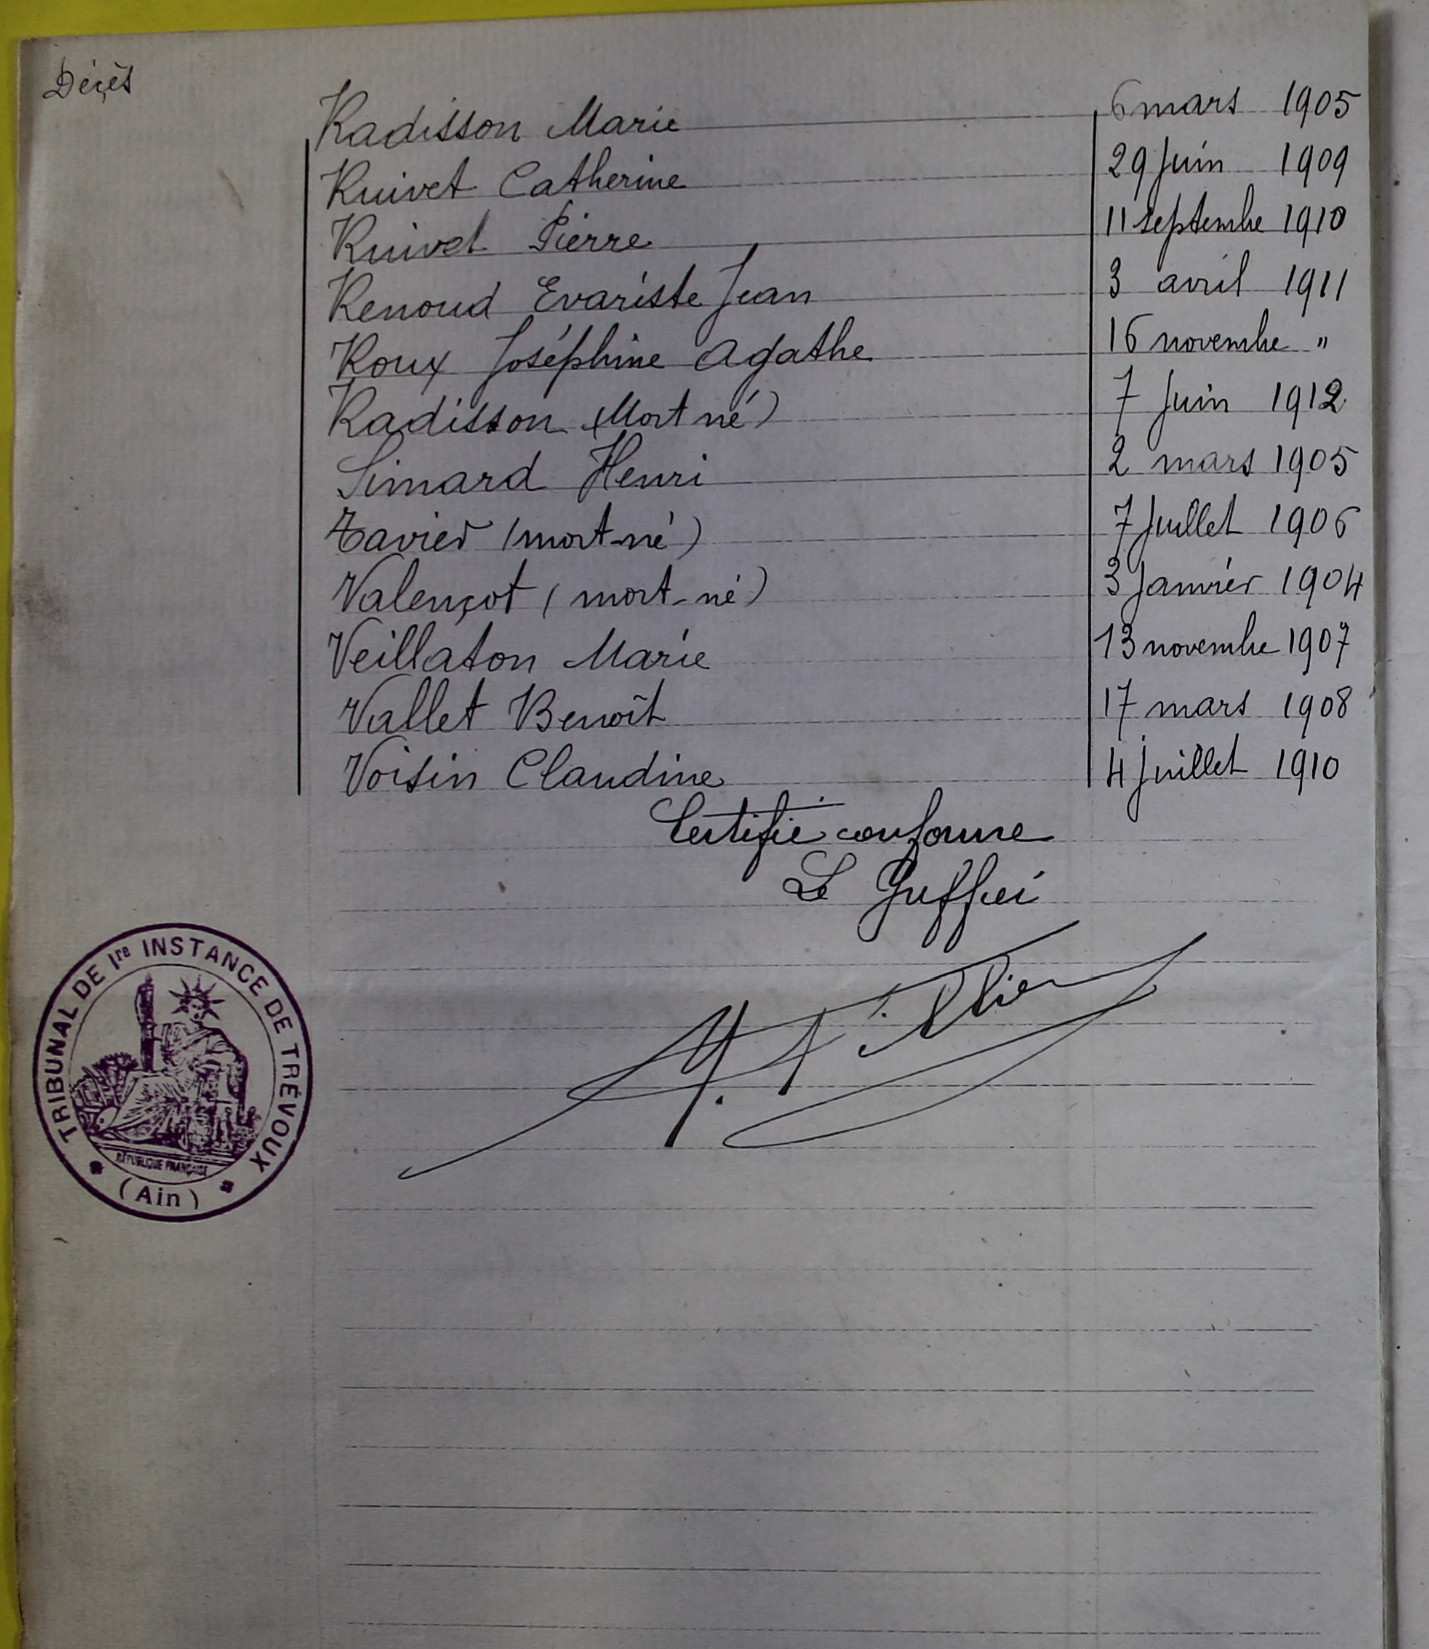 Décès
Radisson Marie 6 mars 1905
Ruivet Catherine 29 Juin 1909
Ruivet Pierre 11 septembre 1910
Renoud Evariste Jean 3 avril 1911
Roux Joséphine Agathe 16 novembre "
Radisson (Mort né) 7 Juin 1912
Simard Henri 2 mars 1905
Tavier (mort-né) 7 Juillet 1906
Valençot (mort-né) 3 Janvier 1904
Veillaton Marie 13 novembre 1907
Vallet Benoît 17 mars 1908
Voisin Claudine 4 Juillet 1910
Certifié conforme
Le Greffier
TRIBUNAL DE Ire INSTANCE DE TRÉVOUX
RÉPUBLIQUE FRANÇAISE
(Ain)